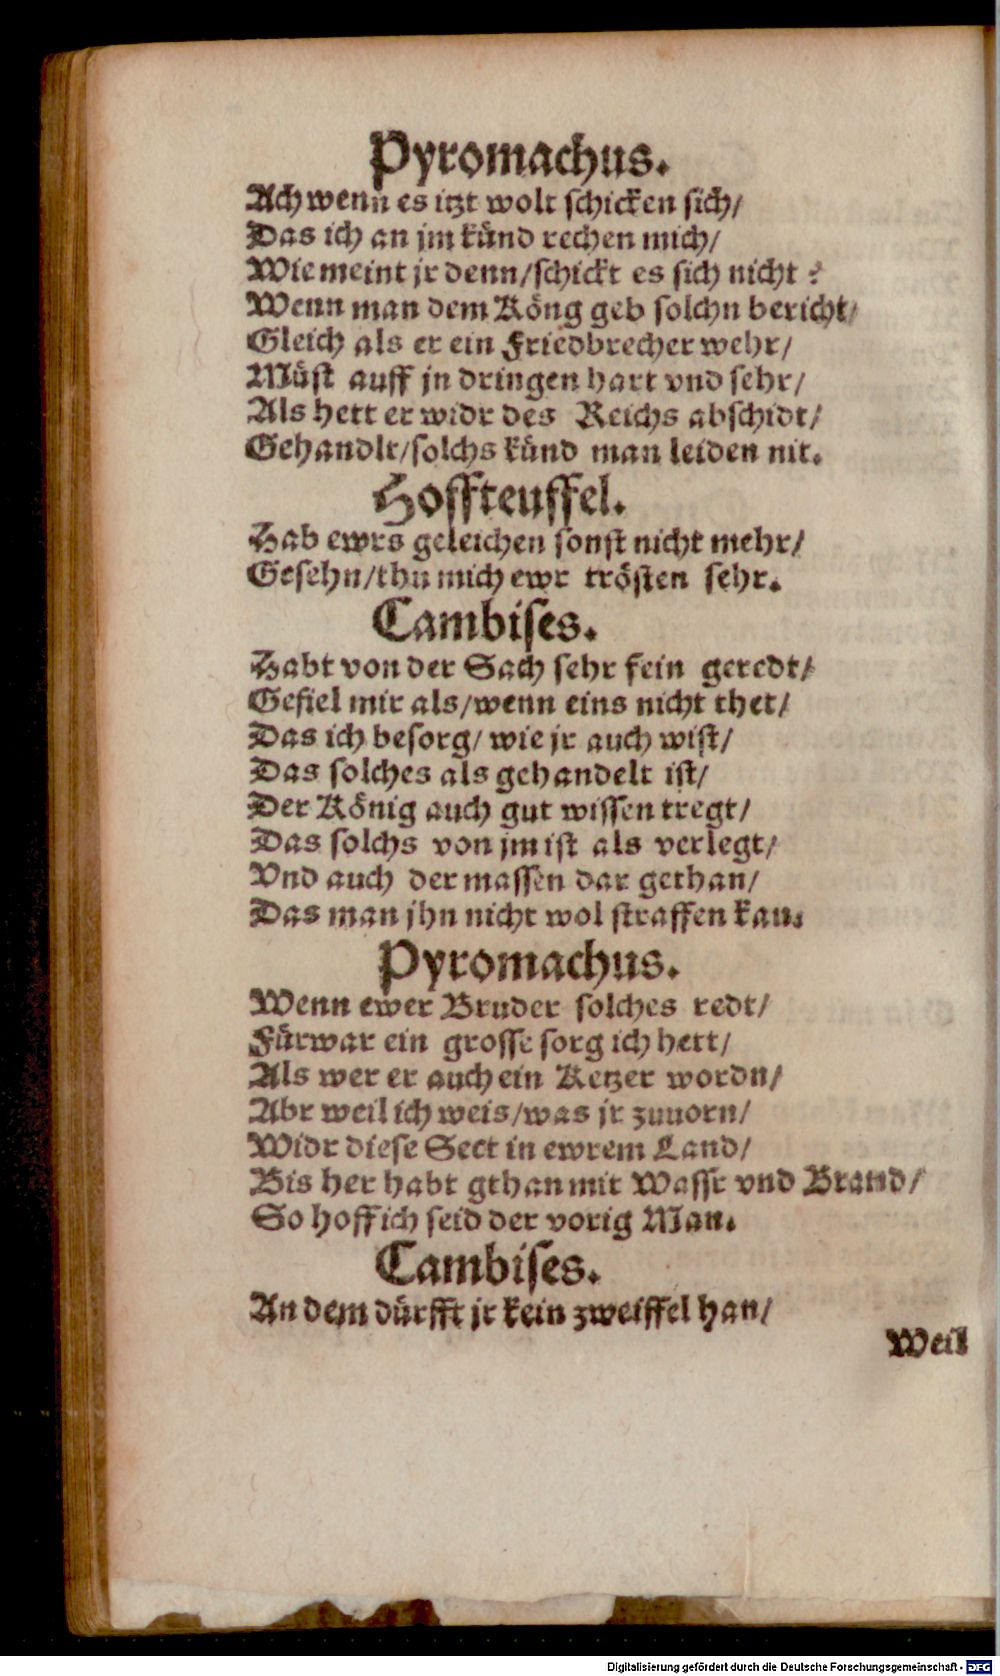 Pyromachus.
Ach wenn es itzt wolt schicken sich/
Das ich an jm künd rechen mich/
Wie meint jr denn/schickt es sich nicht?
Wenn man dem Köng geb solchn bericht/
Gleich als er ein Friedbrecher wehr/
Müst auff jn dringen hart vnd sehr/
Als hett er widr des Reichs abschidt/
Gehandlt/solchs künd man leiden nit.
Hoffteuffel.
Hab ewrs geleichen sonst nicht mehr/
Gesehn/thu mich ewr trösten sehr.
Cambises.
Habt von der Sach sehr fein geredt/
Gefiel mir als/wenn eins nicht thet/
Das ich besorg/ wie jr auch wist/
Das solches als gehandelt ist/
Der König auch gut wissen tregt/
Das solchs von jm ist als verlegt/
Vnd auch der massen dar gethan/
Das man jhn nicht wol straffen kan.
Pyromachus.
Wenn ewer Bruder solches redt/
Fürwar ein grosse sorg ich hett/
Als wer er auch ein Ketzer wordn/
Abr weil ich weis/was jr zuuorn/
Widr diese Sect in ewrem Land/
Bis her habt gthan mit Wassr vnd Brand/
So hoff ich seid der vorig Man.
Cambises.
An dem dürfft jr kein zweiffel han/
Weil
Digitalisierung gefördert durch die Deutsche Forschungsgemeinschaft - DFG